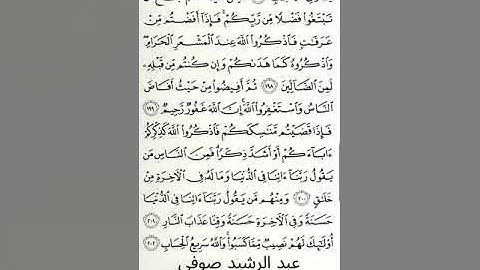 تَبْتَغُوا۟ فَضْلًا مِّن رَّبِّكُمْ ۚ فَإِذَآ أَفَضْتُم مِّنْ
عَرَفَٰتٍ فَٱذْكُرُوا۟ ٱللَّهَ عِندَ ٱلْمَشْعَرِ ٱلْحَرَامِ ۖ
وَٱذْكُرُوهُ كَمَا هَدَىٰكُمْ وَإِن كُنتُم مِّن قَبْلِهِۦ
لَمِنَ ٱلضَّآلِّينَ ١٩٨ ثُمَّ أَفِيضُوا۟ مِنْ حَيْثُ أَفَاضَ
ٱلنَّاسُ وَٱسْتَغْفِرُوا۟ ٱللَّهَ ۚ إِنَّ ٱللَّهَ غَفُورٌ رَّحِيمٌ ١٩٩
فَإِذَا قَضَيْتُم مَّنَٰسِكَكُمْ فَٱذْكُرُوا۟ ٱللَّهَ كَذِكْرِكُمْ
ءَابَآءَكُمْ أَوْ أَشَدَّ ذِكْرًا ۗ فَمِنَ ٱلنَّاسِ مَن
يَقُولُ رَبَّنَآ ءَاتِنَا فِى ٱلدُّنْيَا وَمَا لَهُۥ فِى ٱلْءَاخِرَةِ مِنْ
خَلَٰقٍ ٢٠٠ وَمِنْهُم مَّن يَقُولُ رَبَّنَآ ءَاتِنَا فِى ٱلدُّنْيَا
حَسَنَةً وَفِى ٱلْءَاخِرَةِ حَسَنَةً وَقِنَا عَذَابَ ٱلنَّارِ ٢٠١
أُو۟لَٰٓئِكَ لَهُمْ نَصِيبٌ مِّمَّا كَسَبُوا۟ ۚ وَٱللَّهُ سَرِيعُ ٱلْحِسَابِ ٢٠٢
عبد الرشيد صوفي